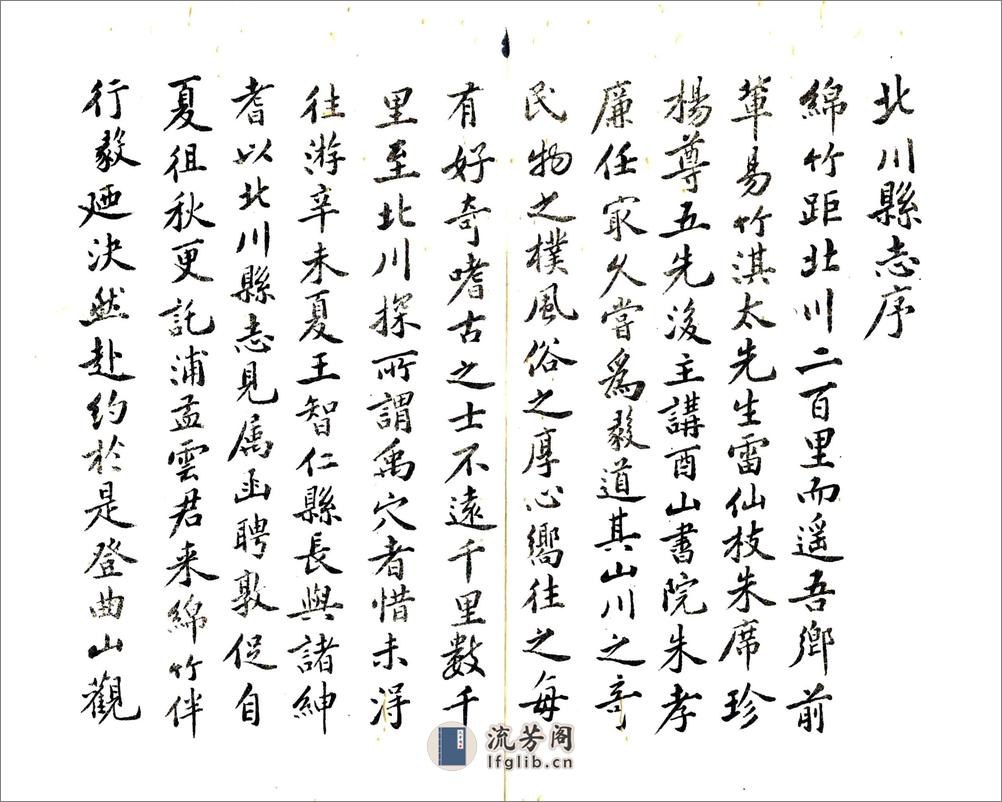 北川縣志序
綿竹距北川二百里而遥吾鄉前
輩易竹淇太先生雷仙枝朱席珍
楊尊五先後主講酉山書院朱孝
廉任冣久嘗爲毅道其山川之奇
民物之樸風俗之厚心嚮往之每
有好奇嗜古之士不遠千里數千
里至北川探所謂禹穴者惜未淂
往游辛未夏王智仁縣長與諸紳
耆以北川縣志見属函聘敦促自
夏徂秋更託浦孟雲君来綿竹伴
行毅廼決然赴约於是登曲山觀
流芳阁
lfglib.cn